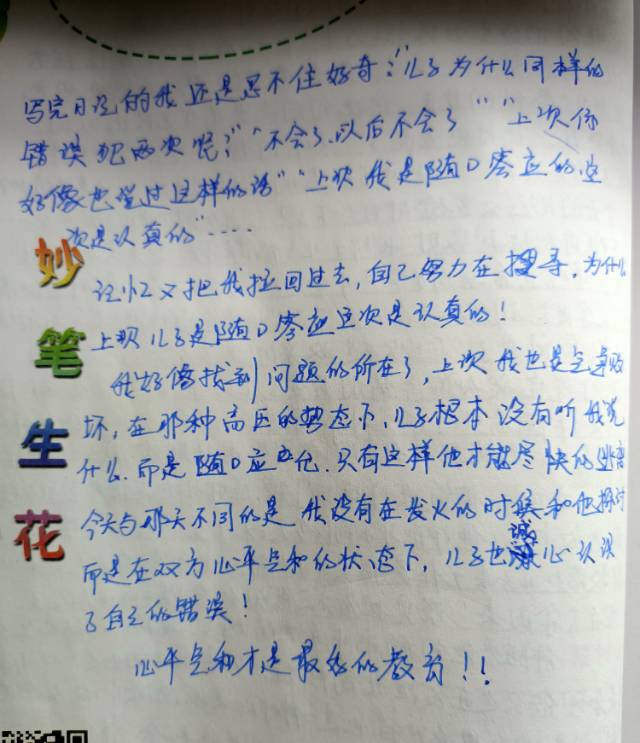 写完日记的我还是忍不住好奇："儿子为什么同样的
错误犯两次呢？" "不会了,以后不会了" "上次你
好像也说过这样的话" "上次我是随口答应的,这
次是认真的"....
记忆又把我拉回过去,自己努力在搜寻,为什么
上次儿子是随口答应这次是认真的！
我好像找到问题的所在了,上次我也是气急败
坏,在那种高压的势态下,儿子根本没有听我说
什么.而是随口应允.只有这样他才能尽快的逃离
今天与那天不同的是我没有在发火的时候和他探讨
而是在双方心平气和的状态下,儿子也诚心认识
了自己的错误！
心平气和才是最好的教育！！
妙
笔
生
花